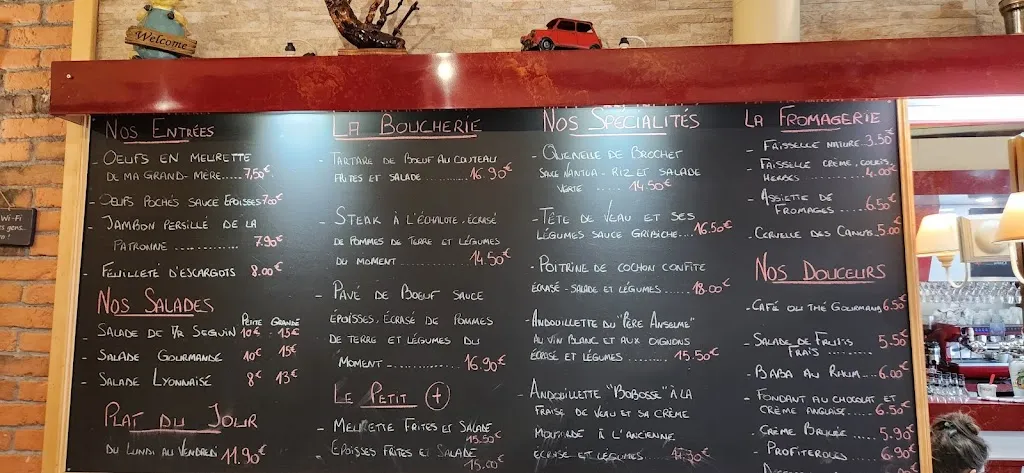 Welcome
Wi-Fi
NOS ENTRÉES
- OEUFS EN MEURETTE
DE MA GRAND-MÈRE.....7,50€.
- OEUFS POCHÉS SAUCE EPOISSES 7.00€
- JAMBON PERSILLÉ DE LA
PATRONNE .............. 7.90€
- FEUILLETÉ D'ESCARGOTS 8.00€
NOS SALADES
PETITE GRANDE
- SALADE DE Mr SEGUIN 10€ - 15€
- SALADE GOURMANDE 10€ 15€
- SALADE LYONNAISE 8€ 13€
PLAT DU JOUR
DU LUNDI AU VENDREDI 11.90€
LA BOUCHERIE
- TARTARE DE BOEUF AU COUTEAU
FRITES ET SALADE ........... 16.90€
- STEAK À L'ÉCHALOTE, ÉCRASÉ
DE POMMES DE TERRE ET LÉGUMES
DU MOMENT ............ 14.50€
- PAVÉ DE BOEUF SAUCE
ÉPOISSES, ÉCRASÉ DE POMMES
DE TERRE ET LÉGUMES DU
MOMENT ............ 16.90€
LE PETIT +
- MEURETTE FRITES ET SALADE
15.50€
- EPOISSES FRITES ET SALADE
15.00€
NOS SPÉCIALITÉS
- QUENELLE DE BROCHET
SAUCE NANTUA - RIZ ET SALADE
VERTE ..... 14.50€
- TÊTE DE VEAU ET SES
LÉGUMES SAUCE GRIBICHE.... 16.50€
- POITRINE DE COCHON CONFITE
ÉCRASÉ - SALADE ET LÉGUMES ...... 18.00€
- ANDOUILLETTE DU "PÈRE ANSELME"
AU VIN BLANC ET AUX OIGNONS
ÉCRASÉ ET LÉGUMES ......... 15.50€
- ANDOUILLETTE "BOBOSSE" À LA
FRAISE DE VEAU ET SA CRÈME
MOUTARDE À L'ANCIENNE
ÉCRASÉ ET LÉGUMES ...... 17.30€
LA FROMAGERIE
- FAISSELLE NATURE..3.50€
- FAISSELLE CRÈME, COULIS,
HERBES .......... 4.00€
- ASSIETTE DE
FROMAGES ..... 6.50€
- CERVELLE DES CANUTS. 5.00€
NOS DOUCEURS
- CAFÉ OU THÉ GOURMAND 6.50€
- SALADE DE FRUITS
FRAIS .......... 5.50€
- BABA AU RHUM....6.00€
- FONDANT AU CHOCOLAT ET
CRÈME ANGLAISE..... 6.50€
- CRÈME BRULÉE .... 5.90€
- PROFITEROLES .... 6.90€